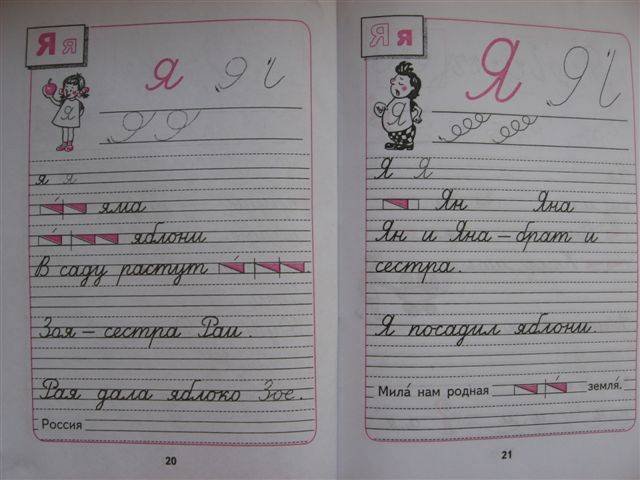 Я я
я Я
я я
яма
яблони
В саду растут .
Зоя – сестра Раи.
Рая дала яблоко Зое.
Россия
20
Я я
Я Я
Я
Я Я
Ян Яна
Ян и Яна – брат и
сестра.
Я посадил яблони.
Мила́ нам родная земля́.
21